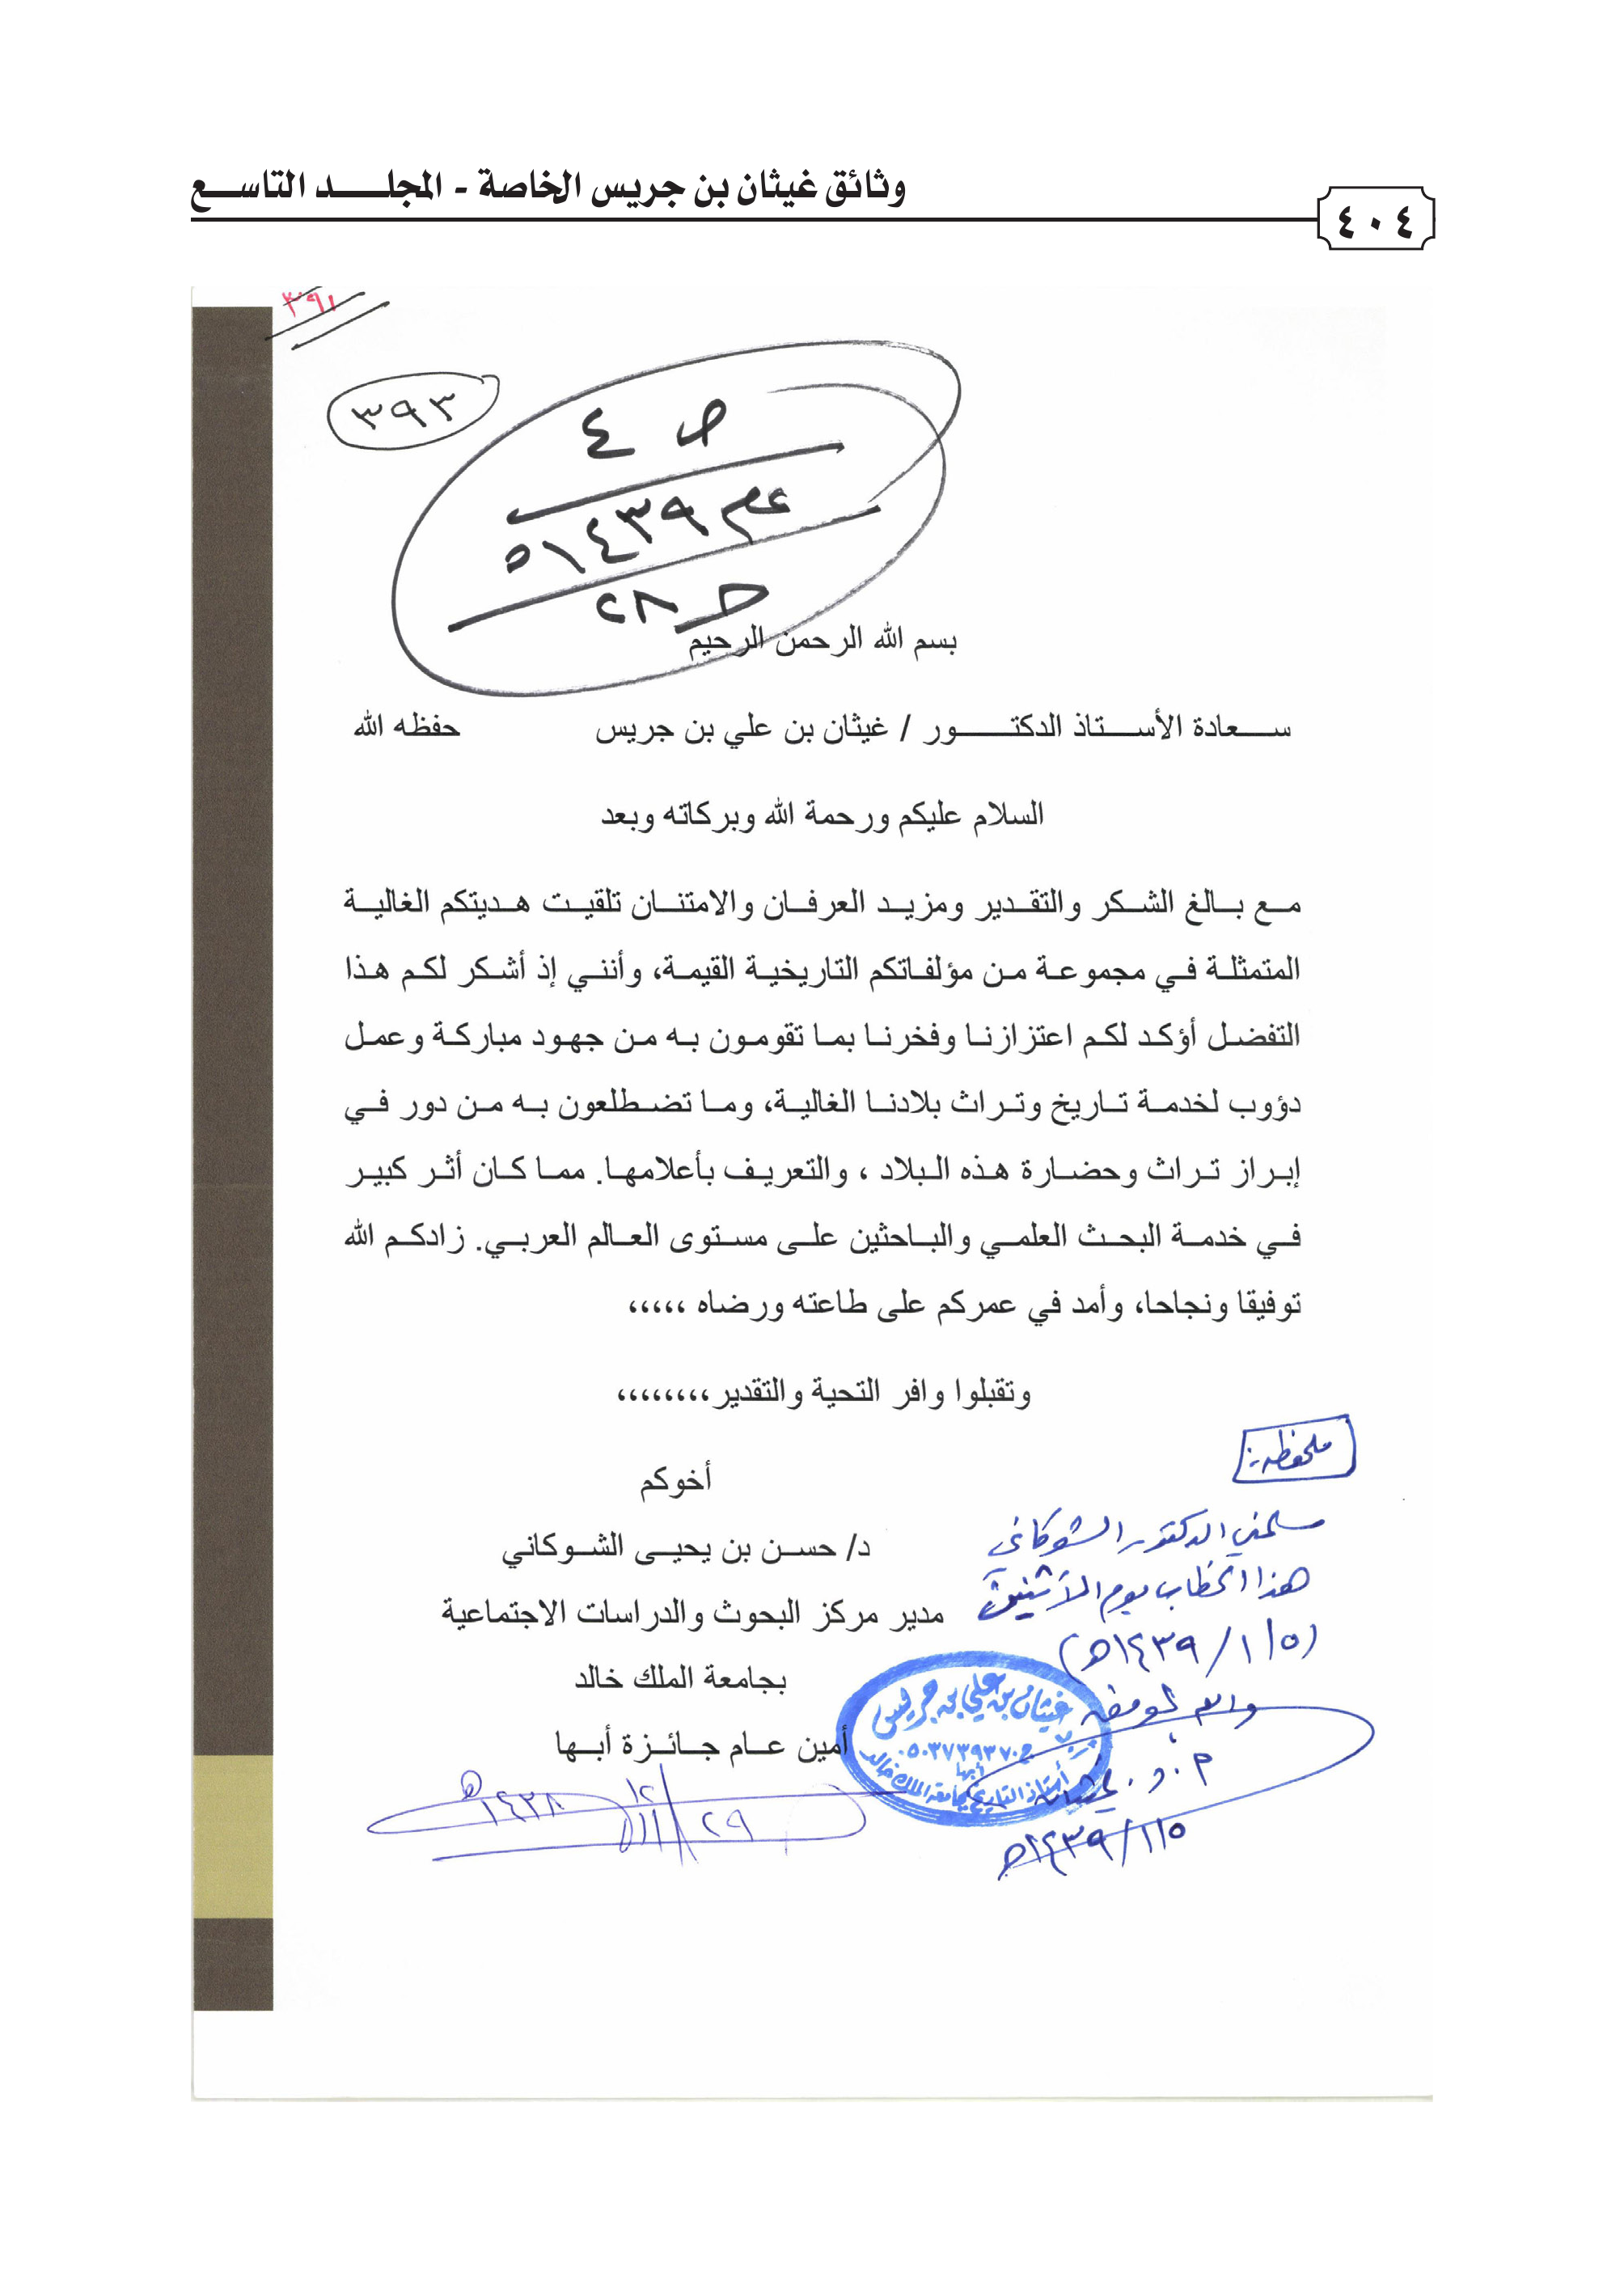 وثائق غيثان بن جريس الخاصة - المجلد التاسع
٤٠٤
٣٩١
٣٩٣
ص ٤
عام ١٤٣٩هـ
حـ ٢٨
بسم الله الرحمن الرحيم
سعادة الأستاذ الدكتور / غيثان بن علي بن جريس حفظه الله
السلام عليكم ورحمة الله وبركاته وبعد
مع بالغ الشكر والتقدير ومزيد العرفان والامتنان تلقيت هديتكم الغالية
المتمثلة في مجموعة من مؤلفاتكم التاريخية القيمة، وأنني إذ أشكر لكم هذا
التفضل أؤكد لكم اعتزازنا وفخرنا بما تقومون به من جهود مباركة وعمل
دؤوب لخدمة تاريخ وتراث بلادنا الغالية، وما تضطلعون به من دور في
إبراز تراث وحضارة هذه البلاد ، والتعريف بأعلامها. مما كان أثر كبير
في خدمة البحث العلمي والباحثين على مستوى العالم العربي. زادكم الله
توفيقا ونجاحا، وأمد في عمركم على طاعته ورضاه ،،،،،
وتقبلوا وافر التحية والتقدير،،،،،،،،
أخوكم
د/ حسن بن يحيى الشوكاني
مدير مركز البحوث والدراسات الاجتماعية
بجامعة الملك خالد
أمين عام جائزة أبها
١٤٣٨هـ
ملحوظة:
سلمني الدكتور الشوكاني
هذا الخطاب يوم الاثنين
(١٤٣٩/١/٥هـ)
والله الموفق
أ.د. غيثان
١٤٣٩/١/٥هـ
غيثان بن علي بن جريس
ج ٠٥٠٣٧٣٩٣٧٠
أبها
أستاذ التاريخ بجامعة الملك خالد